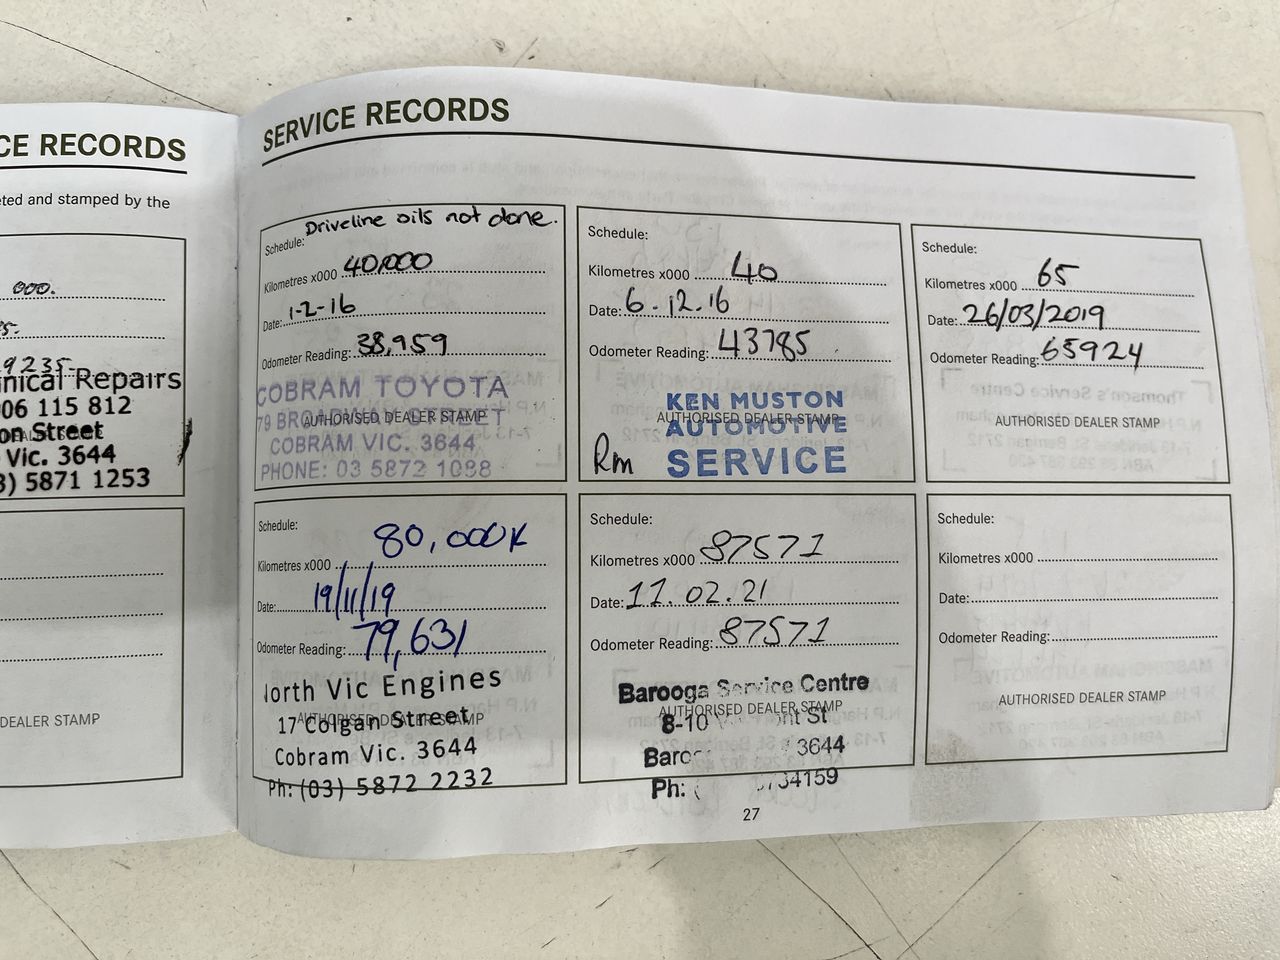 CE RECORDS
eted and stamped by the
000.
5.
9235
nical Repairs
06 115 812
on Street
Vic. 3644
3) 5871 1253
DEALER STAMP
SERVICE RECORDS
Schedule: Driveline oils not done.
Kilometres x000 40,000
Date: 1-2-16
Odometer Reading: 38,959
COBRAM TOYOTA
AUTHORISED DEALER STAMP
COBRAM VIC. 3644
PHONE: 03 5872 1088
Schedule:
Kilometres x000 40
Date: 6.12.16
Odometer Reading: 43785
KEN MUSTON
AUTHORISED DEALER STAMP
AUTOMOTIVE
Rm SERVICE
Schedule:
Kilometres x000 65
Date: 26/03/2019
Odometer Reading: 65924
AUTHORISED DEALER STAMP
Schedule:
Kilometres x000 80,000K
Date: 19/11/19
Odometer Reading: 79,631
North Vic Engines
AUTHORISED DEALER STAMP
17 Colgan Street
Cobram Vic. 3644
Ph: (03) 5872 2232
Schedule:
Kilometres x000 87571
Date: 11.02.21
Odometer Reading: 87571
Barooga Service Centre
AUTHORISED DEALER STAMP
8-10 St
3644
Ph: 34159
Schedule:
Kilometres x000
Date:
Odometer Reading:
AUTHORISED DEALER STAMP
27